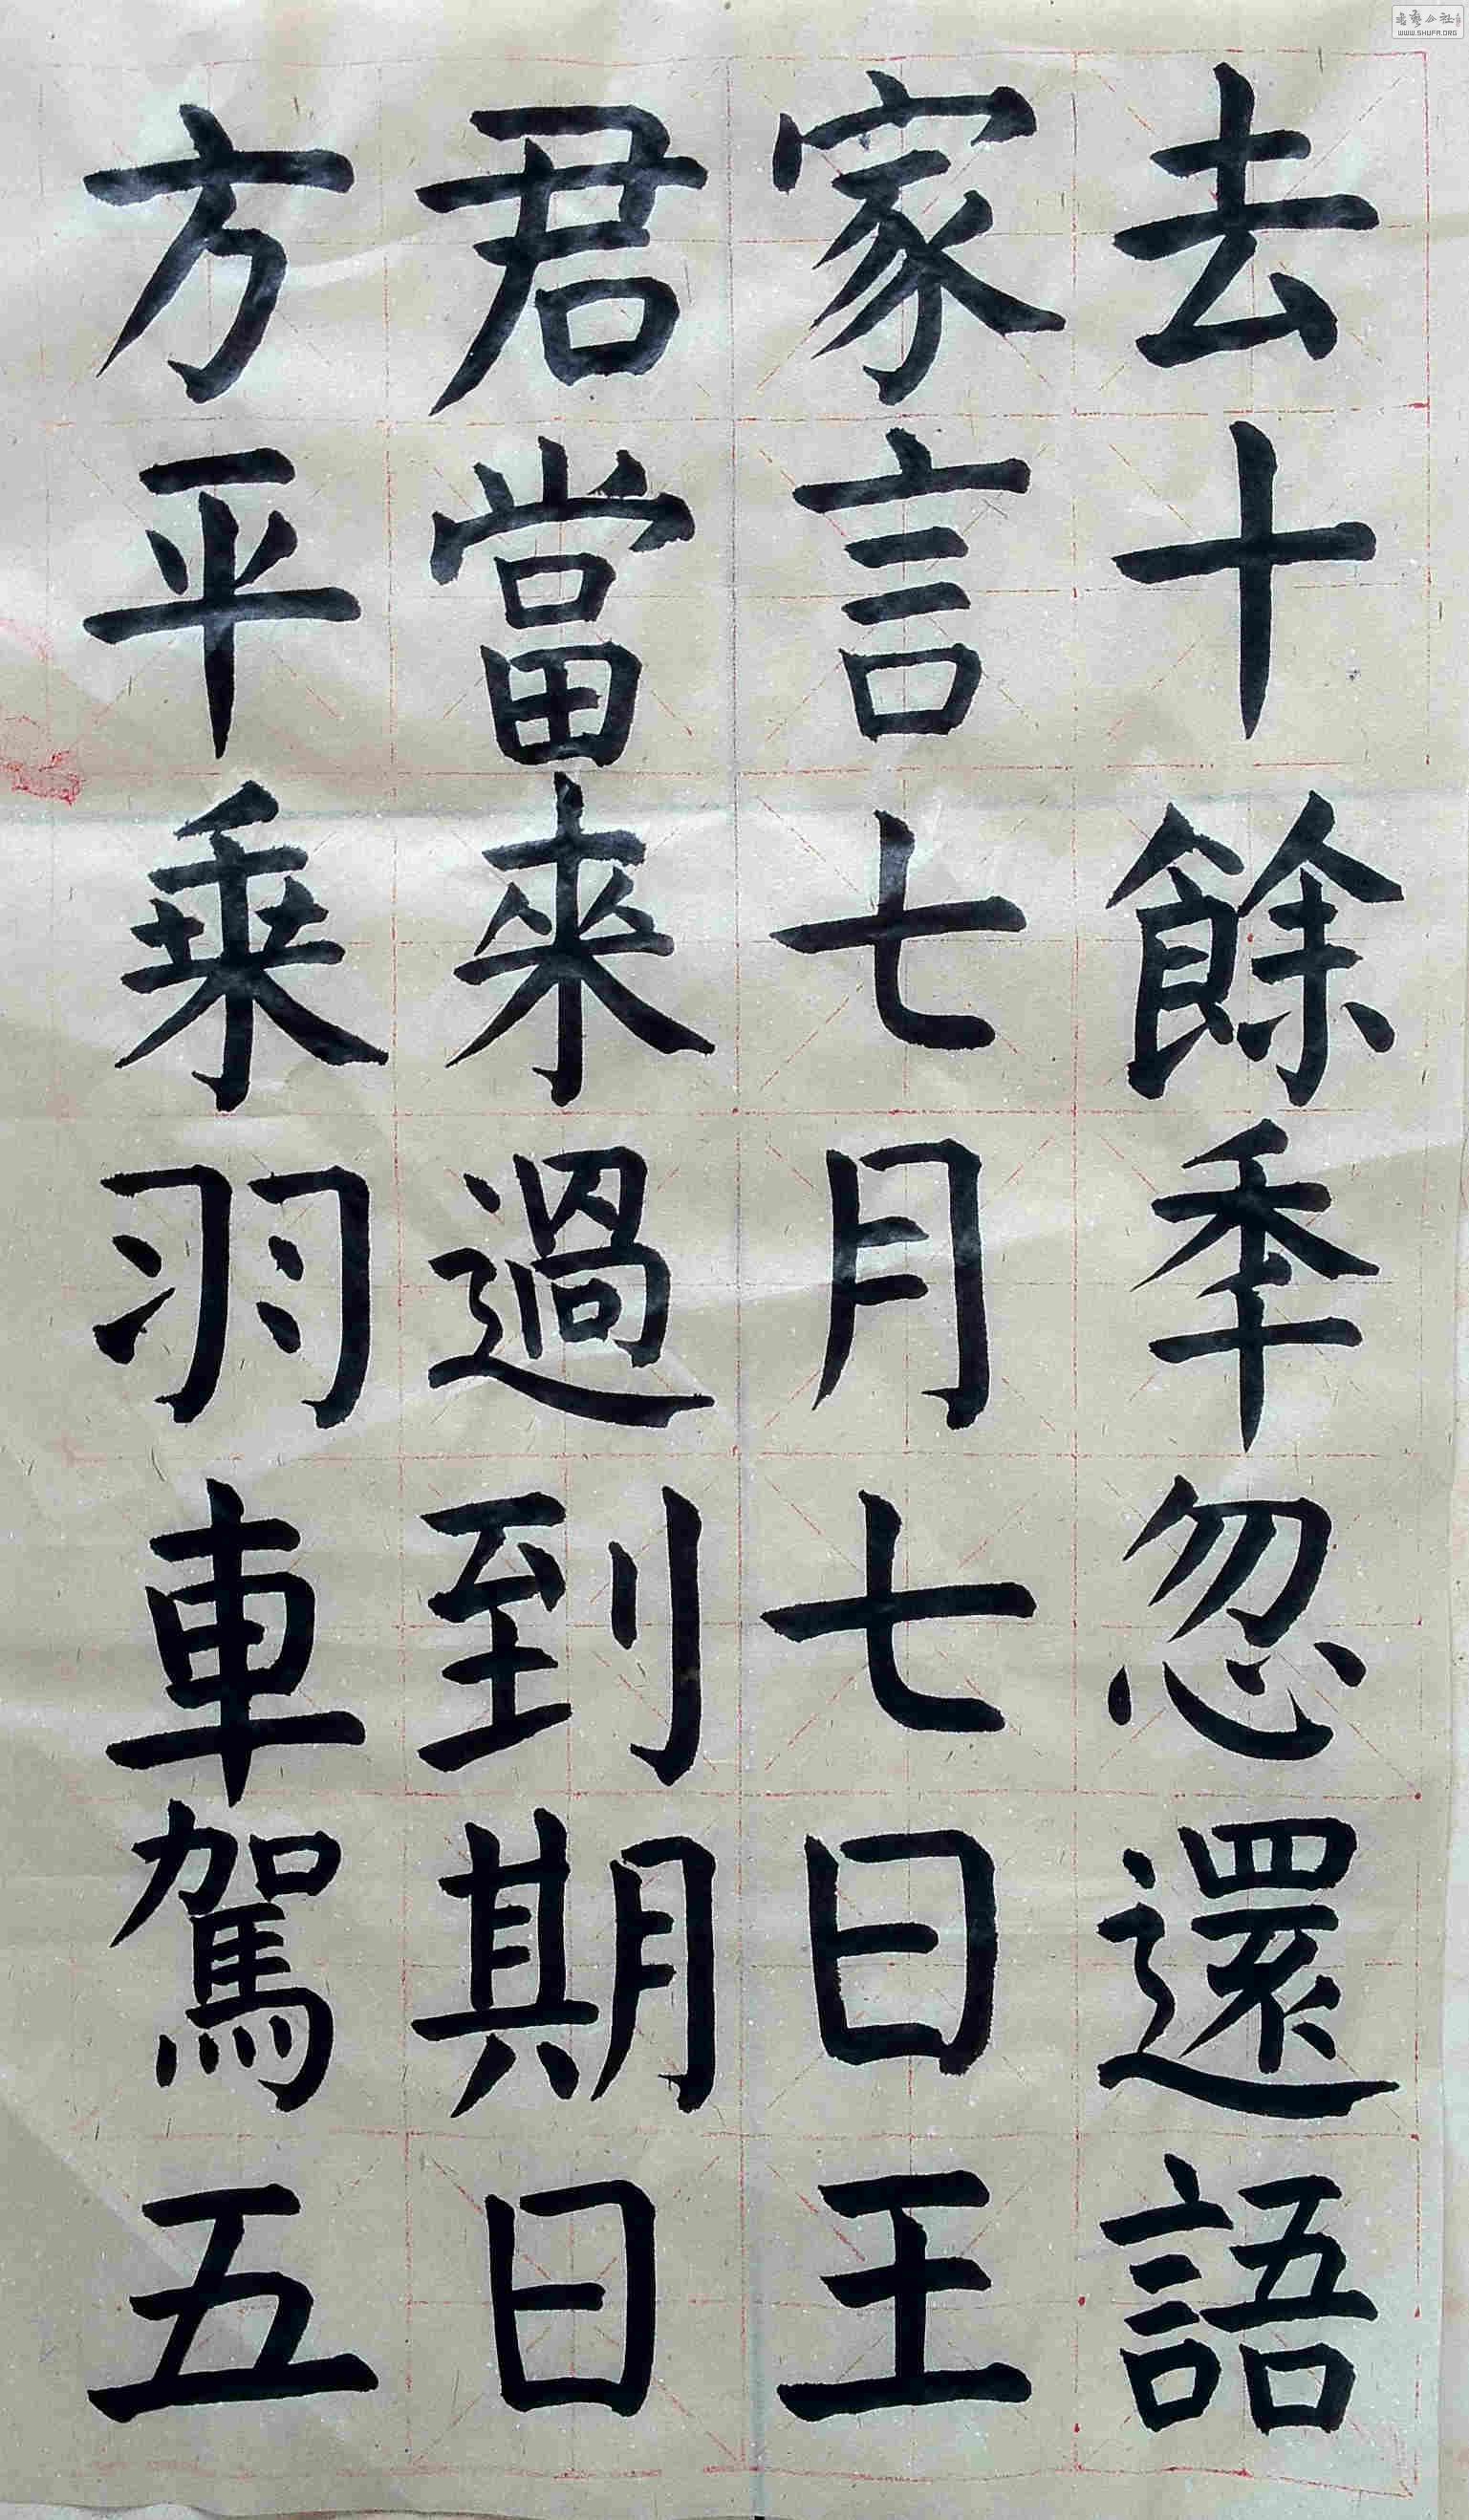 去十餘秊忽還語
家言七月七日王
君當來過到期日
方平乗羽車駕五
書藝公社
WWW.SHUFA.ORG